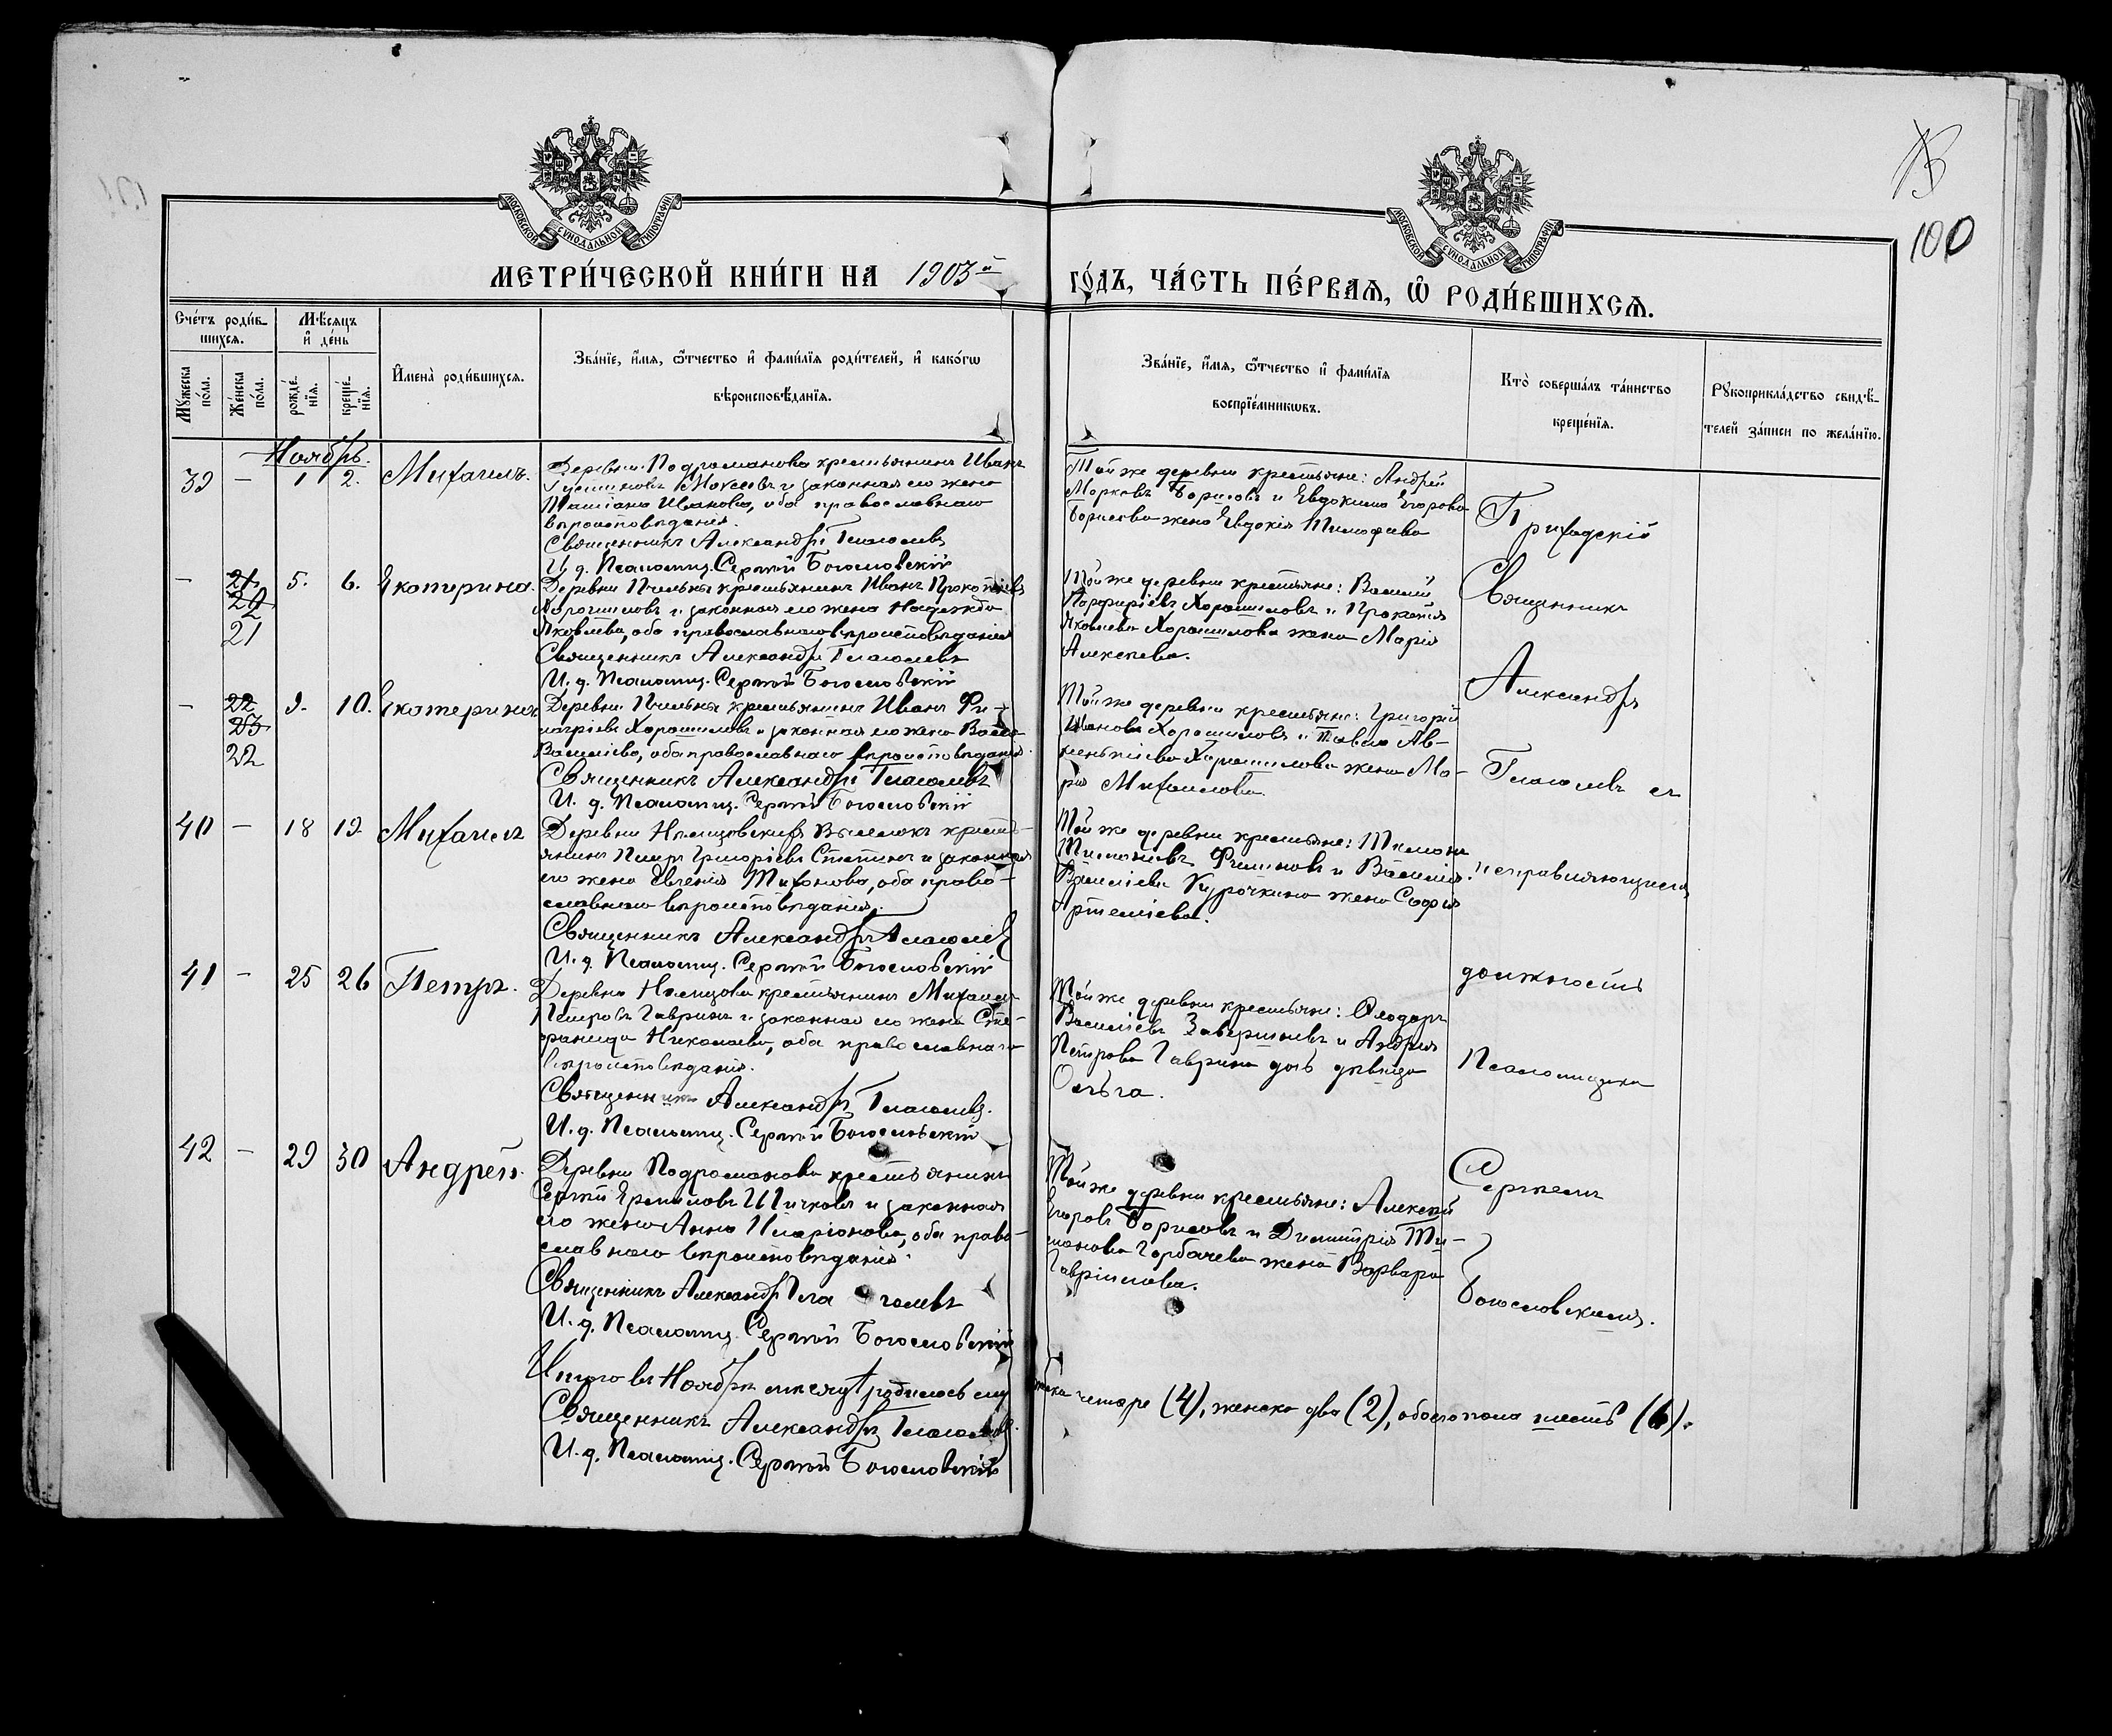 100
МОСКОВСКОЙ СУНОДАЛЬНОЙ ТИПОГРАФІИ
МОСКОВСКОЙ СУНОДАЛЬНОЙ ТИПОГРАФІИ
МЕТРИ́ЧЕСКОЙ КНИ́ГИ НА 1903й
ГО́ДЪ, ЧА́СТЬ ПЕ́РВАЯ, Ѡ РОДИ́ВШИХСЯ.
Сче́тъ роди́вшихся.
Мꙋжеска по́ла.
Же́нска по́ла.
Мѣ́сяцъ и де́нь
рожде́нїя.
креще́нїя.
Имена̀ роди́вшихся.
Зва́нїе, и́мя, ѻ҆́тчество и фами́лїя роди́телей, и како́гѡ
вѣроисповѣ́данїя.
Зва́нїе, и́мя, ѻ҆́тчество и фами́лїя
воспрїе́мникѡвъ.
Кто̀ соверша́лъ та́инство
креще́нїя.
Рꙋкоприкла́дство свидѣ́-
телей за́писи по жела́нїю.
Ноябрь.
39 - 1 2. Михаилъ.
Деревни Подромановa крестьянинъ Иванъ
Моисеевъ и законная его жена
Татіана Иванова, оба православнаго
вѣроисповѣданія.
Священникъ Александръ Глаголевъ
И. д. Псаломщ. Сергѣй Богословскій
Той же деревни крестьяне: Андрей
Марковъ Борисовъ и Евдокима Егорова
Борисова жена Евдокія Тимофеева
- 21 5. 6. Екатерина.
Деревни Пчельни крестьянинъ Иванъ Прокопіевъ
Хорошиловъ и законная его жена Надежда
Яковлева, оба православнаго вѣроисповѣданія
Священникъ Александръ Глаголевъ
И. д. Псаломщ. Сергѣй Богословскій
Той же деревни крестьяне: Василій
Порфиріевъ Хорошиловъ и Прокопія
Яковлева Хорошилова жена Марія
Алексѣева.
- 22 9. 10. Екатерина
Деревни Пчельни крестьянинъ Иванъ
Хорошиловъ и законная его жена
Василіева, оба православнаго вѣроисповѣданія.
Священникъ Александръ Глаголевъ
И. д. Псаломщ. Сергѣй Богословскій
Той же деревни крестьяне: Григорій
Ивановъ Хорошиловъ и Павла Ав-
Хорошилова жена Ма-
рія Михаилова
40 - 18 19. Михаилъ
Деревни Нѣмцовскихъ Выселокъ кресть-
янинъ Петръ Григоріевъ и законная
его жена Евгенія Тихонова, оба право-
славнаго вѣроисповѣданія.
Священникъ Александръ Глаголевъ
И. д. Псаломщ. Сергѣй Богословскій
Той же деревни крестьяне:
Филиповъ и Василія
Василіева Курочкина жена Софія
Артеміева.
41 - 25 26 Петръ.
Деревни Нѣмцова крестьянинъ Михаилъ
Петровъ Гавринъ и законная его жена Сте-
фанида Николаева, оба православнаго
вѣроисповѣданія.
Священникъ Александръ Глаголевъ.
И. д. Псаломщ. Сергѣй Богословскій
Той же деревни крестьяне: Ѳеодоръ
Василіевъ и Андрея
Петрова Гаврина дочь дѣвица
Ольга.
42 - 29 30 Андрей.
Деревни Подроманова крестьянинъ
Сергѣй Ермиловъ Шичковъ и законная
его жена Анна Иларіонова, оба право-
славнаго вѣроисповѣданія.
Священникъ Александръ Глаголевъ
И. д. Псаломщ. Сергѣй Богословскій
Той же деревни крестьяне: Алексѣй
Егоровъ Борисовъ и Димитрія Ти-
Горбачева жена Варвара
Гавріилова.
Приходскій
Священникъ
Александръ
Глаголевъ съ
исправляющимъ
должность
Псаломщика
Сергѣемъ
Богословскимъ.
Итого въ Ноябрѣ мѣсяцѣ родилось муж
четыре (4), женска два (2), обоего пола шесть (6).
Священникъ Александръ Глаголевъ.
И. д. Псаломщ. Сергѣй Богословскій